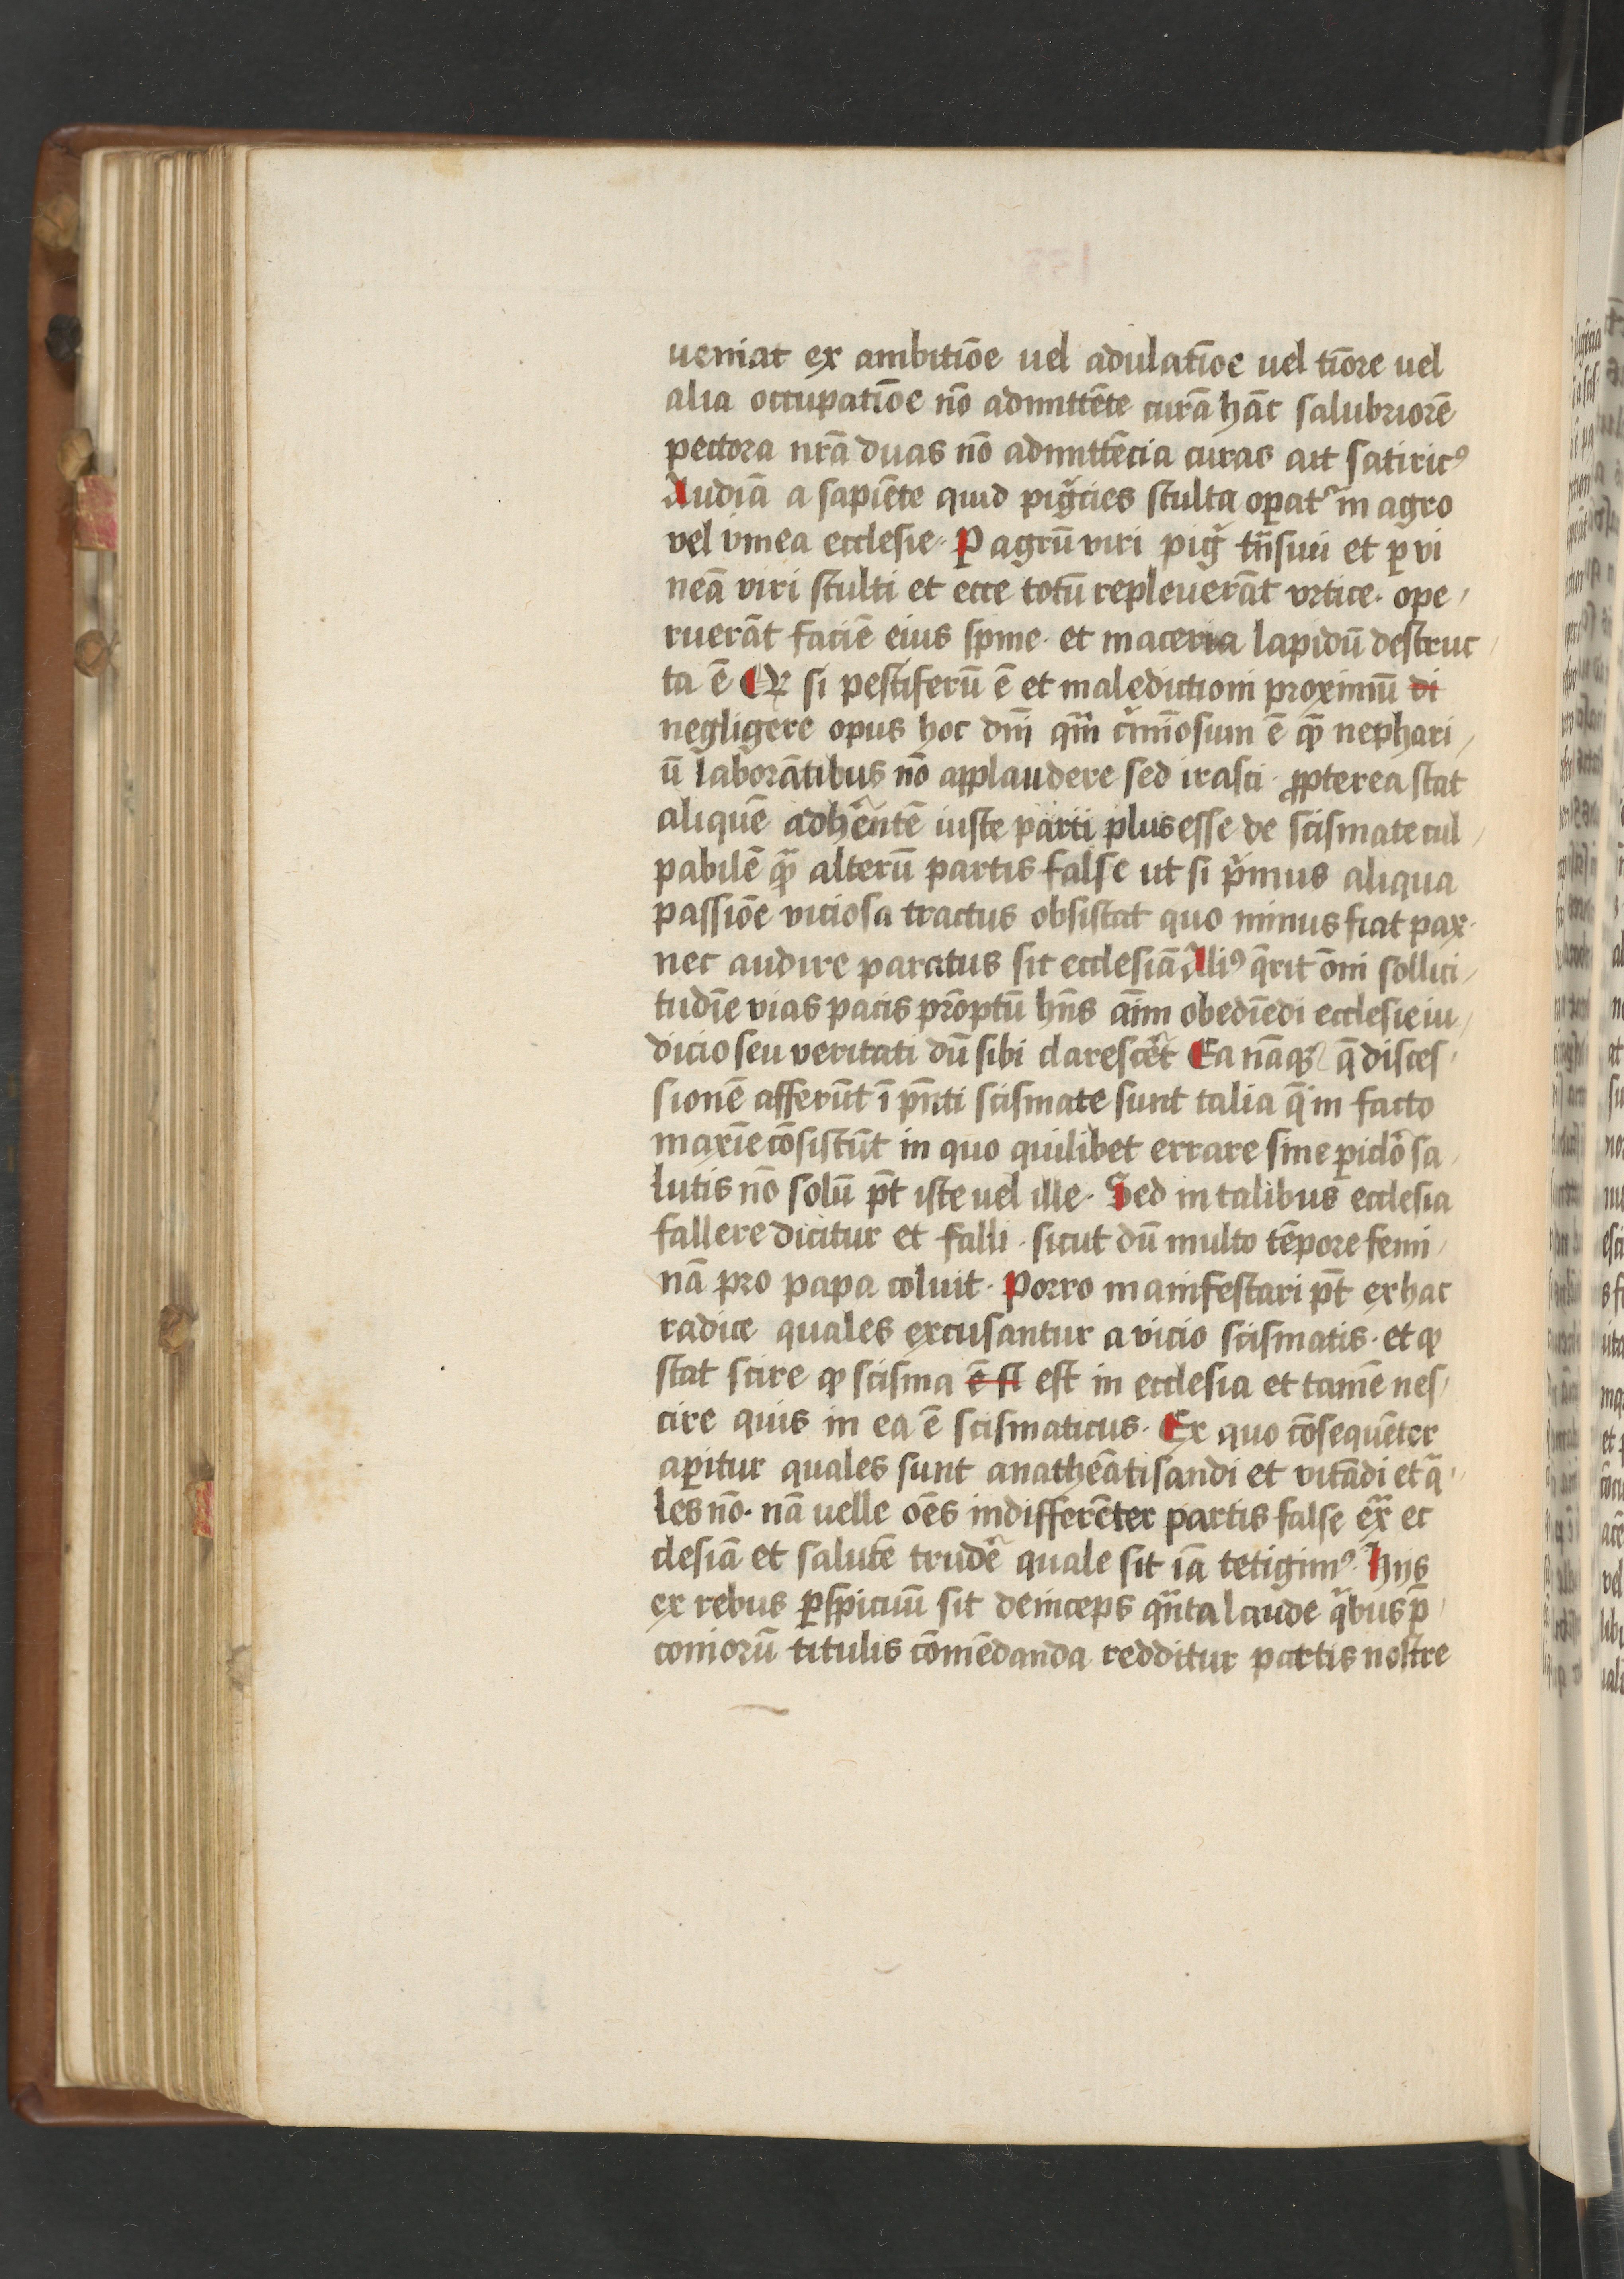 ueniat ex ambitiōe uel adulatiōe uel tiōre uel
alia occupatiōe nō admittēte curā hāc salubriorē
pectora nr̄a duas nō admittēcia curas ait satiricꝰ
Audiā a sapiēte quid pigͥcies stulta oꝑatᷣ in agro
vel vinea ecclesie· Ꝑ agrū viri pigͥ tn̄siui et ꝑ vi
neā viri stulti et ecce totū repleuerāt vrtice· ope
ruerāt faciē eius spine· et maceria lapidū destruc
ta ē Qꝛ si pestiferū ē et maledictioni proximū di
negligere opus hoc dn̄i qm̄ cͥmiōsum ē qͣ nephari
ū laborātibus nō applaudere sed irasci· ꝓpterea stat
aliquē adhērntē iuste parti plus esse de scismate cul
pabilē qͣ alterū partis false ut si pͥmus aliqua
passiōe viciosa tractus obsistat quo minus fiat pax·
nec audire paratus sit ecclesiā Aliꝰ q̄rit ōni sollici
tudīe vias pacis prōptū hn̄s aīm obediēdi ecclesie iu
dicio seu veritati dū sibi clarescēt Ea nāqꝫ q̄ disces
sionē afferūt ī pn̄ti scismate sunt talia q̄ in facto
maxīe cōsistūt in quo quilibet errare sine ꝑiclō sa
lutis nō solū pt̄ iste uel ille· Sed in talibus ecclesia
fallere dicitur et falli· sicut dū multo tēpore femi
nā pro papa coluit· Porro manifestari pt̄ ex hac
radice quales excusantur a vicio scismatis· et ꝙ
stat scire ꝙ scisma ē si est in ecclesia et tamē nes
cire quis in ea ē scismaticus· Ex quo cōsequēter
aꝑitur quales sunt anathēatisandi et vitādi et qͣ
les nō· nā uelle oēs indifferēter partis false exͣ ec
clesiā et salutē trudēr quale sit iā tetigimꝰ· Hijs
ex rebus ꝑspicuū sit deinceps qn̄ta laude qͥbus p̄
coniorū titulis cōmēdanda redditur partis nostre